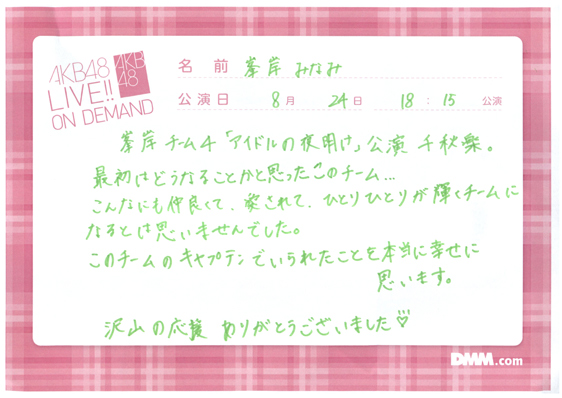 AKB48
LIVE!!
ON DEMAND
AKB
48
名前 峯岸 みなみ
公演日 8月 24日 18:15 公演
峯岸チーム4「アイドルの夜明け」公演 千秋楽。
最初はどうなることかと思ったこのチーム...
こんなにも仲良くて、愛されて、ひとりひとりが輝くチームに
なるとは思いませんでした。
このチームのキャプテンでいられたことを本当に幸せに
思います。
沢山の応援 ありがとうございました♡
DMM.com